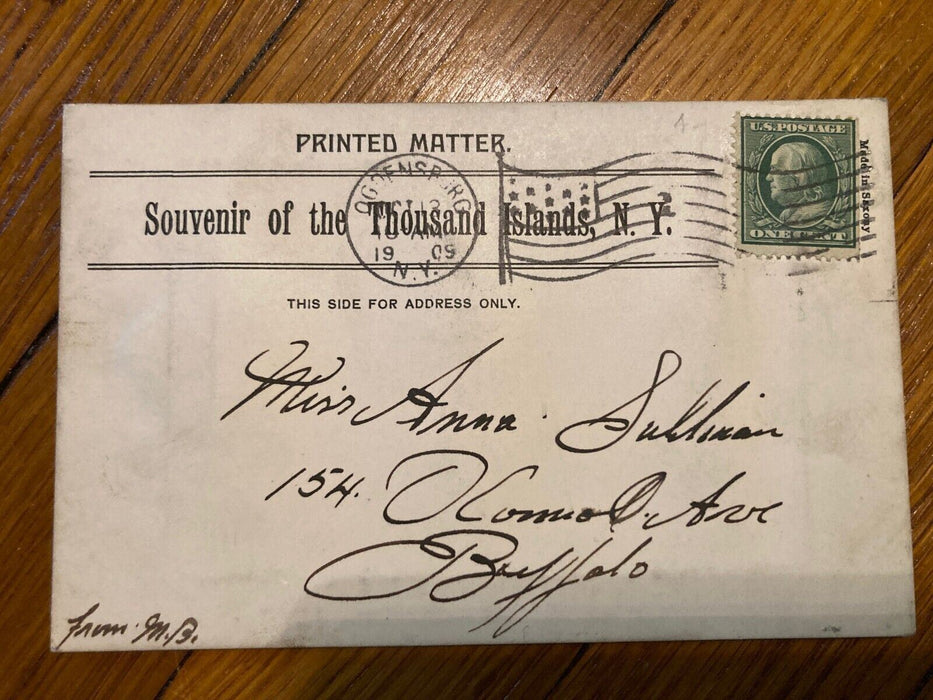 PRINTED MATTER.
Souvenir of the Thousand Islands, N. Y.
OGDENSBURG
OCT 12
AM
19 09
N.Y.
U.S. POSTAGE
ONE CENT
Made in Saxony
THIS SIDE FOR ADDRESS ONLY.
Miss Anna Sullivan
154. Ave
Buffalo
from M.B.